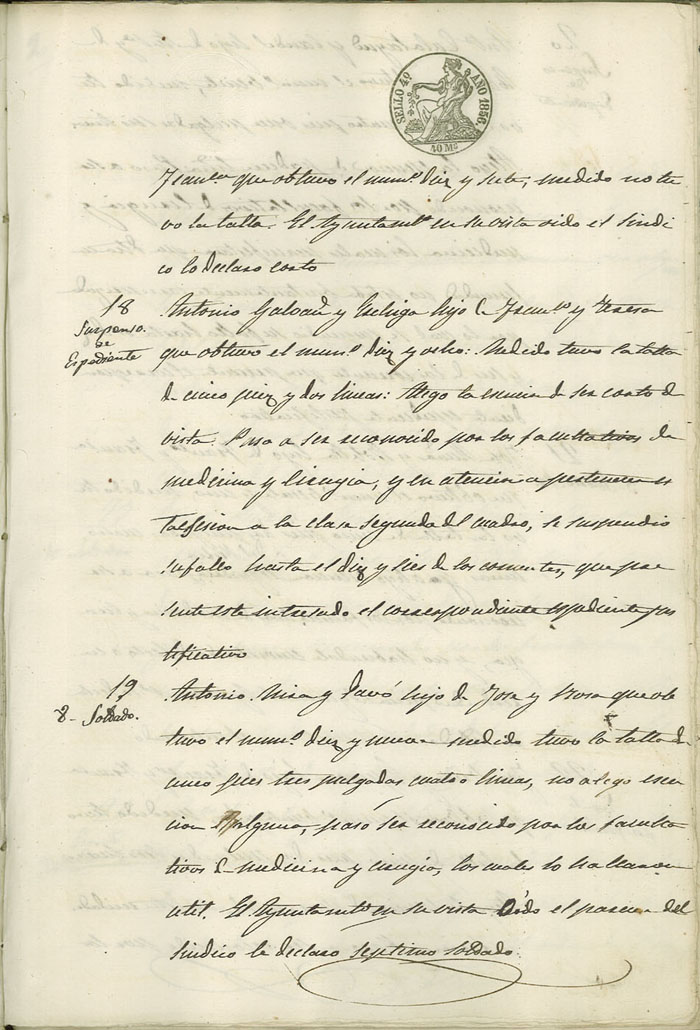 SELLO 4º AÑO 1856
40 Ms
que obtuvo el numº diez y siete, medido no tu
vo la talla. El Ayuntamtº en su vista oido el Sindi
co lo declaro corto
18
Suspenso.
de
Espediente
Antonio Galvañ y hijo de Franº y Teresa
que obtuvo el numº diez y ocho: Medido tuvo la talla
de cinco pies y dos lineas: Alego la de ser corto de
vista. Paso a ser reconocido por los facultativos de
medicina y Cirugia, y en atencion a pertenecer es
ta lesion a la clase segunda del cuadro, se suspendio
su fallo hasta el diez y seis de los corrientes, que pre
sente este interesado el correspondiente espediente jus
tificativo
19
8- Soldado.
Antonio Mira y Pavó hijo de Jose y Rosa que ob
tuvo el numº diez y nueve medido tuvo la talla de
cinco pies tres pulgadas cuatro lineas, no alego esen
cion Alguna, pasó ser reconocido por los faculta
tivos de medicina y cirugia, los cuales lo hallaron
util. El Ayuntamtº en su vista Oido el parecer del
Sindico le declaro septimo soldado.